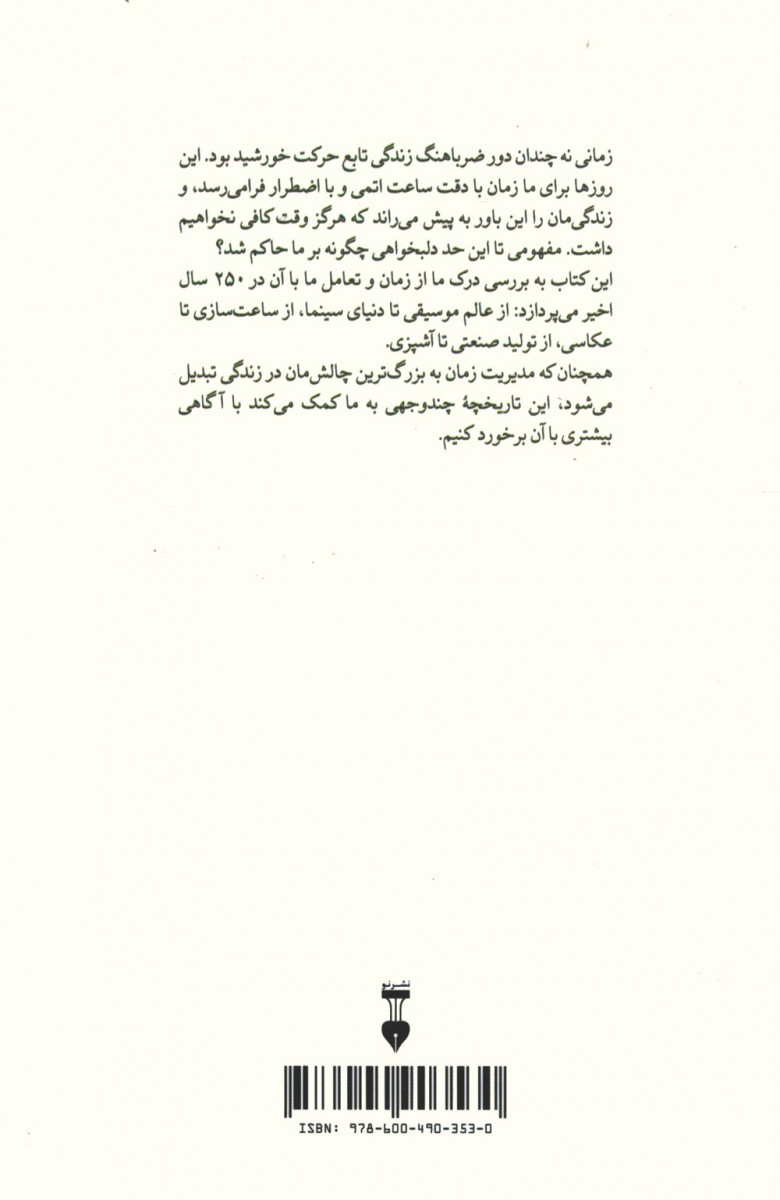 زمانی نه چندان دور ضرباهنگ زندگی تابع حرکت خورشید بود. این
روزها برای ما زمان با دقت ساعت اتمی و با اضطرار فرامی‌رسد، و
زندگی‌مان را این باور به پیش می‌راند که هرگز وقت کافی نخواهیم
داشت. مفهومی تا این حد دلبخواهی چگونه بر ما حاکم شد؟
این کتاب به بررسی درک ما از زمان و تعامل ما با آن در ۲۵۰ سال
اخیر می‌پردازد: از عالم موسیقی تا دنیای سینما، از ساعت‌سازی تا
عکاسی، از تولید صنعتی تا آشپزی.
همچنان‌که مدیریت زمان به بزرگ‌ترین چالش‌مان در زندگی تبدیل
می‌شود، این تاریخچهٔ چندوجهی به ما کمک می‌کند با آگاهی
بیشتری با آن برخورد کنیم.
نشرنو
ISBN: 978-600-490-353-0